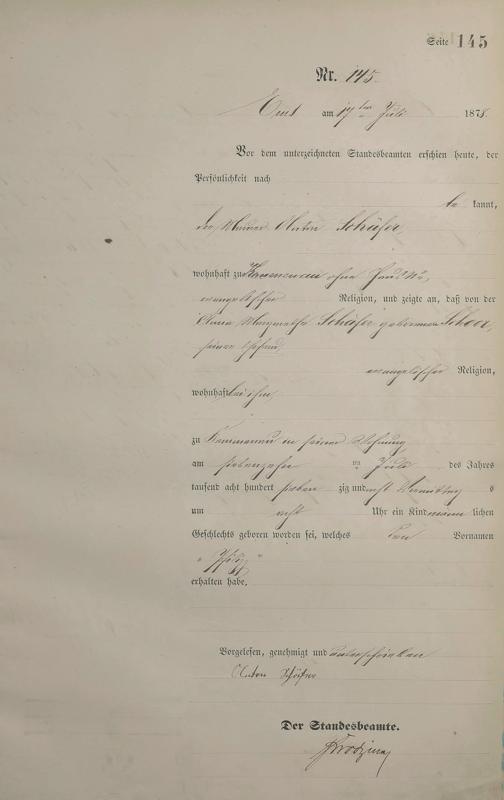 Seite 145
Nr. 145.
Ems am 17ten Juli 1878.
Vor dem unterzeichneten Standesbeamten erschien heute, der
Persönlichkeit nach
be kannt,
der Maurer Anton Schäfer
wohnhaft zu Kemmenau ohne Haus Nr,
evangelischer Religion, und zeigte an, daß von der
Anna Margarethe Schäfer geborenen
seiner Ehefrau,
evangelischer Religion,
wohnhaft bei ihm,
zu Kemmenau in seiner Wohnung
am siebenzehn ten Juli des Jahres
tausend acht hundert sieben zig und acht Vormittag s
um acht Uhr ein Kind männ lichen
Geschlechts geboren worden sei, welches den Vornamen
erhalten habe.
Vorgelesen, genehmigt und unterschrieben
Anton Schäfer
Der Standesbeamte.